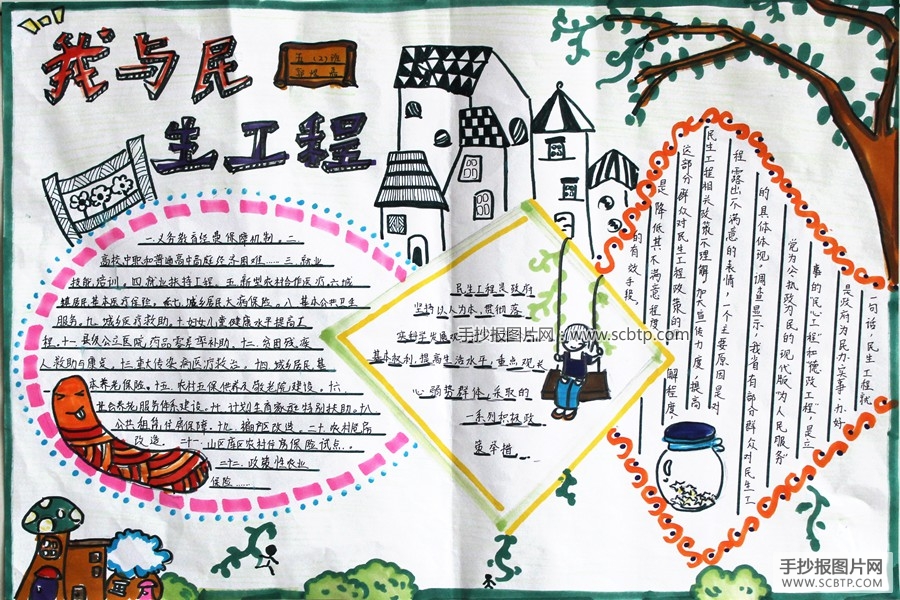 我与民
生工程
五（2）班
一.义务教育经费保障机制。二
高校中职和普通高中家庭经济困难……三.就业
技能培训，四.就业扶持工程。五.新型农村合作医疗.六.城
镇居民基本医疗保险。七.城乡居民大病保险。八.基本公共卫生
服务。九.城乡医疗救助。十.妇女儿童健康水平提高工
程。十一.县级公立医院药品零差率补助。十二.贫困残疾
人救助与康复。十三.重大传染病医疗救治。十四.城乡居民基
本养老保险。十五.农村五保供养及敬老院建设。十六.
社会养老服务体系建设。十 计划生育家庭特别扶助。十八
公共租赁住房保障。十九 棚户区改造。二十.农村危房
改造。二十一.山区库区农村住房保险试点。
二十二.政策性农业
保险……
民生工程是政府
坚持以人为本.贯彻落
实科学发展
基本权利，提高生活水平，重点观关
心弱势群体，采取的
一系列积极政
策举措
一句话，民生工程就
是政府为民办实事、办好
事的民心工程”和“德政工程”，是立
党为公、执政为民的现代版“为人民服务”
的具体体现。调查显示：我省有部分群众对民生工
程露出不满意的表情，一个主要原因是对
民生工程相关政策不理解，加大宣传力度，提高
这部分群众对民生工程政策的 解程度，
是降低其不满意程度
的有效手段。
手抄报图片网 www.scbtp.com
www.scbtp.com
手抄报图片网
WWW.SCBTP.COM